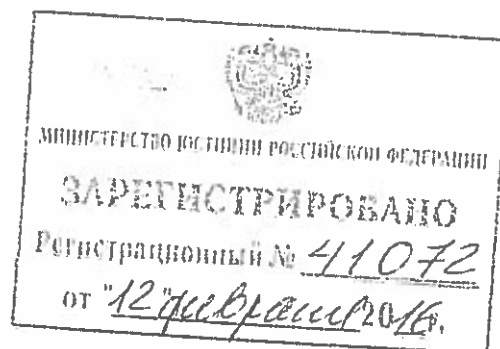 МИНИСТЕРСТВО ЮСТИЦИИ РОССИЙСКОЙ ФЕДЕРАЦИИ
ЗАРЕГИСТРИРОВАНО
Регистрационный № 41072
от "12" февраля 2016г.